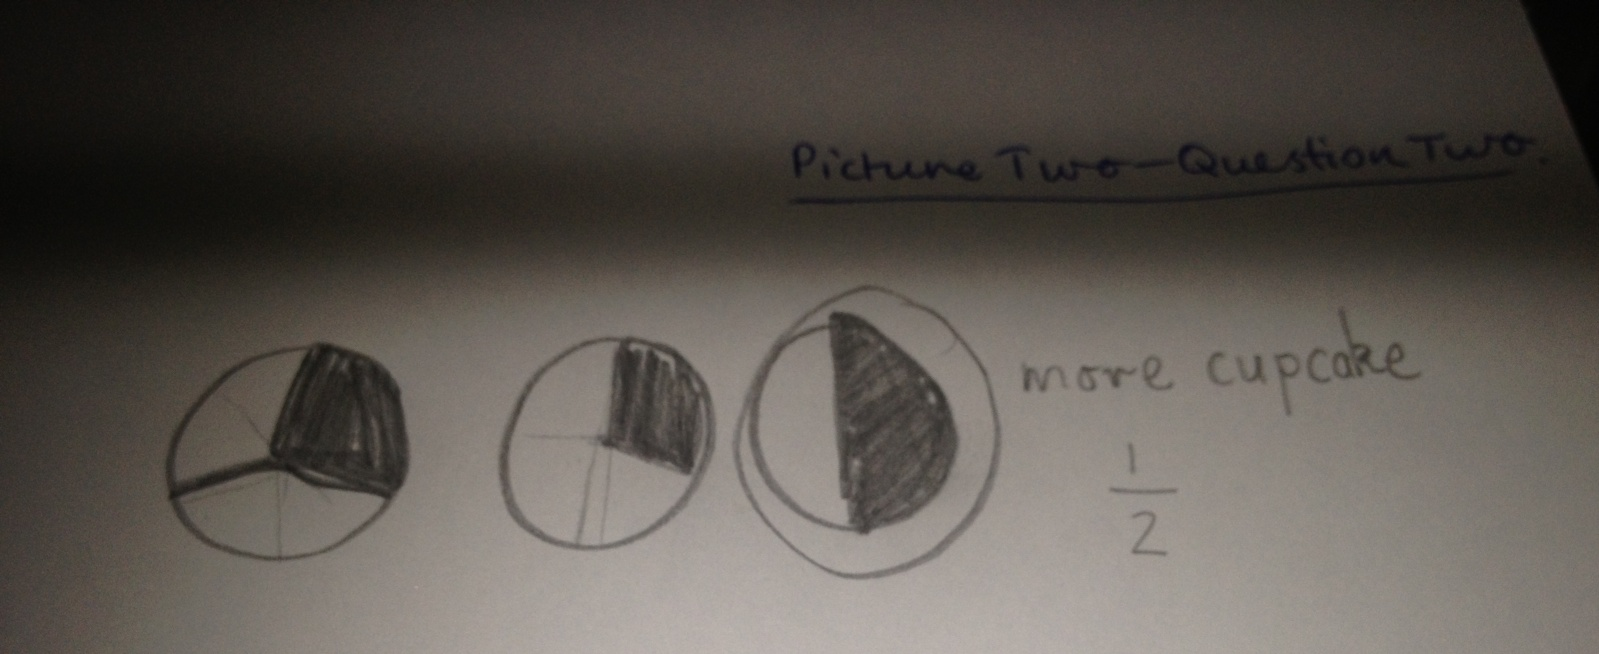 Picture Two - Question Two.
more cupcake
1
2